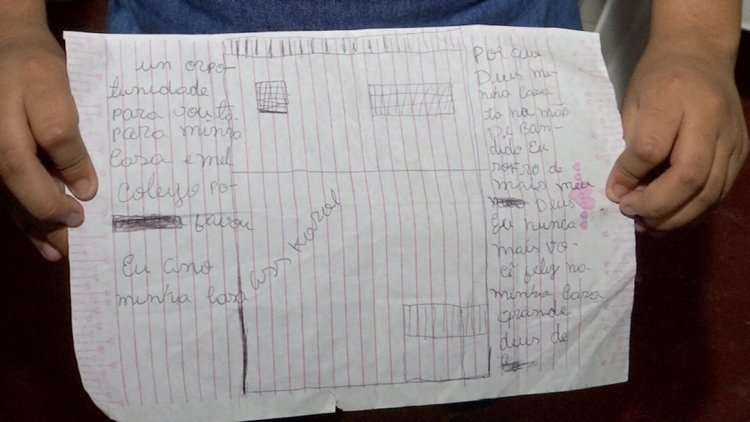 un orpo-
tunidade
para vouta
para minha
Casa e mel
Coleyo po-
favou
Eu amo
minha casa
ass Karol
Por que
Deus mi-
nha casi-
ta na mão
de Ban-
dido Eu
sofro de
mais meu
Deus
Eu nunca
mais vo-
ei feliz na
minha Casa
grande
deus de